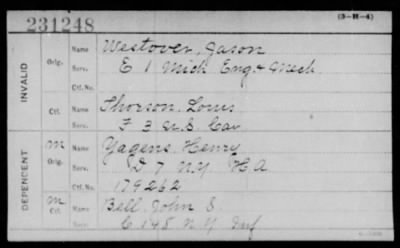 231248
(3-H-4)
INVALID
Orig. Name Westover, Jason
Serv. E 1 Mich Eng. & Mech
Ctf. No.
Ctf. Name Thorson, Louis
Serv. F 3 U.S. Cav
DEPENDENT
M Orig. Name Yagens, Henry
Serv. D 7 N.Y. H A
Ctf. No. 179262
M Ctf. Name Bell, John S.
Serv. C 148 N Y Inf